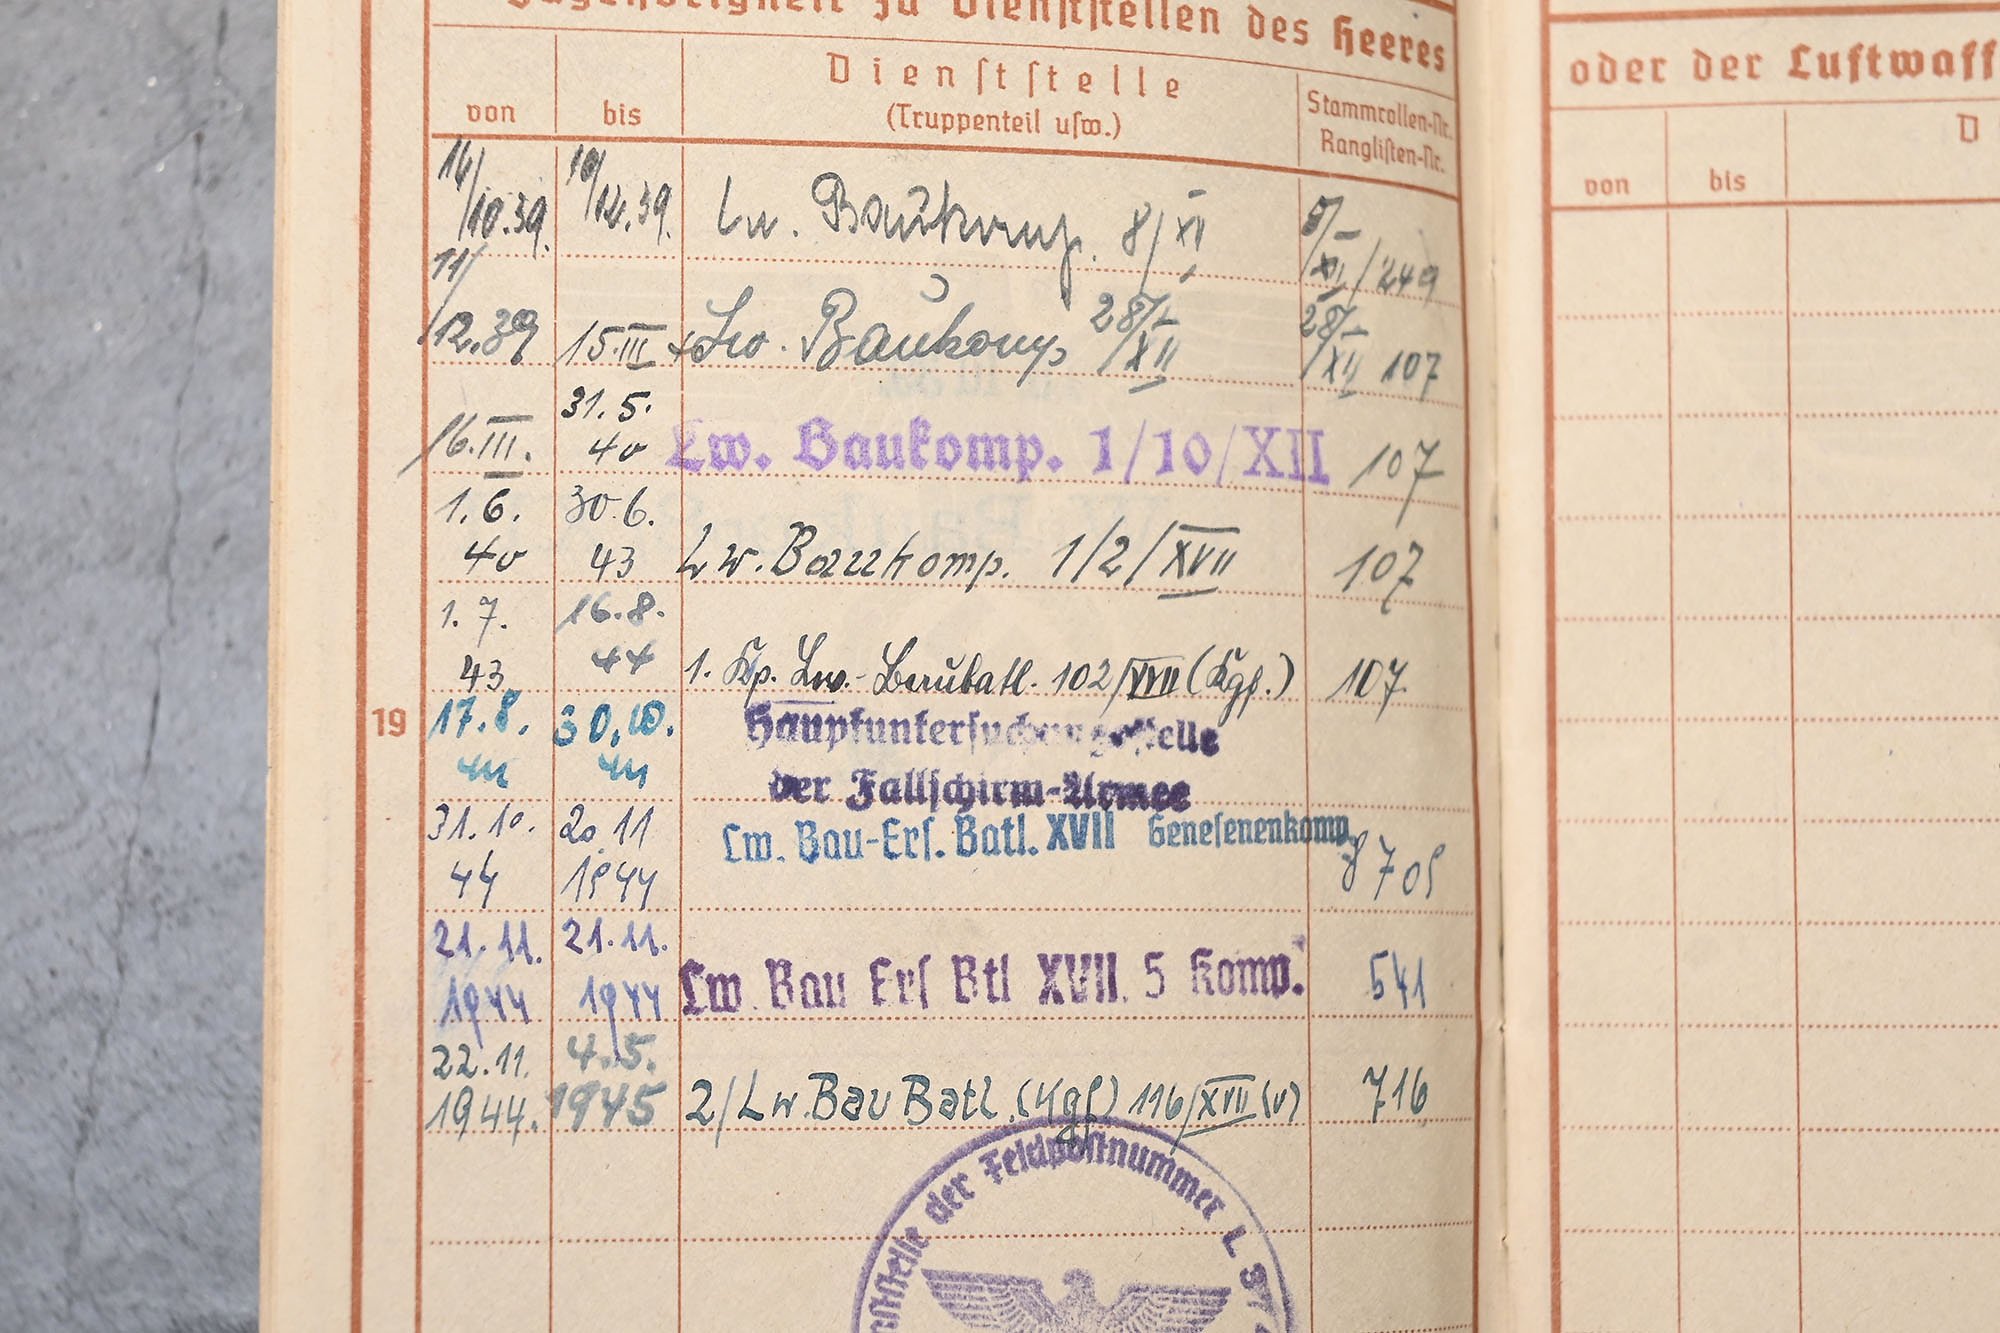 Zugehörigkeit zu Dienststellen des Heeres
von bis Dienststelle
(Truppenteil usw.)
Stammrollen-Nr.
Ranglisten-Nr.
16/10.39. 10/12.39. Lw. Baukomp. 8/XI 8/XI/249
11/12.39 15.III Lw. Baukomp 28/XII 28/XII 107
16.III. 31.5.40 Lw. Baukomp. 1/10/XII 107
1.6.40 30.6.43 Lw. Baukomp. 1/2/XVII 107
1.7.43 16.8.44 1. Kp. Lw.-Baubatl. 102/XVII (Kgf.) 107.
19 17.8.44 30.10.44 Hauptuntersuchungsstelle
der Fallschirm-Armee
31.10.44 20.11.1944 Lw. Bau-Ers. Batl. XVII Genesenenkomp. 8705
21.11.1944 21.11.1944 Lw. Bau Ers Btl XVII. 5 Komp. 541
22.11.1944. 4.5.1945 2/Lw. Bau Batl. (Kgf) 116/XVII (v) 716
Dienststelle der Feldpostnummer L 37
oder der Luftwaff
von bis D